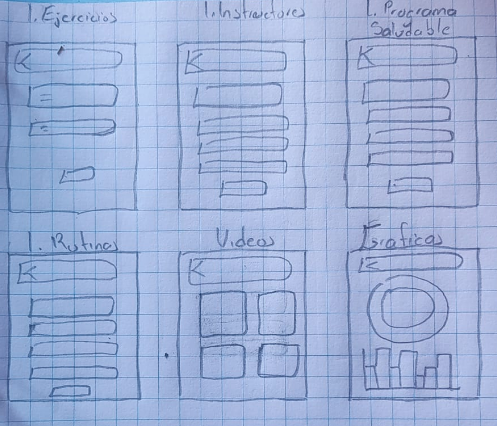 1. Ejercicios
1. Instructores
1. Programa
Saludable
1. Rutinas
Videos
Graficas